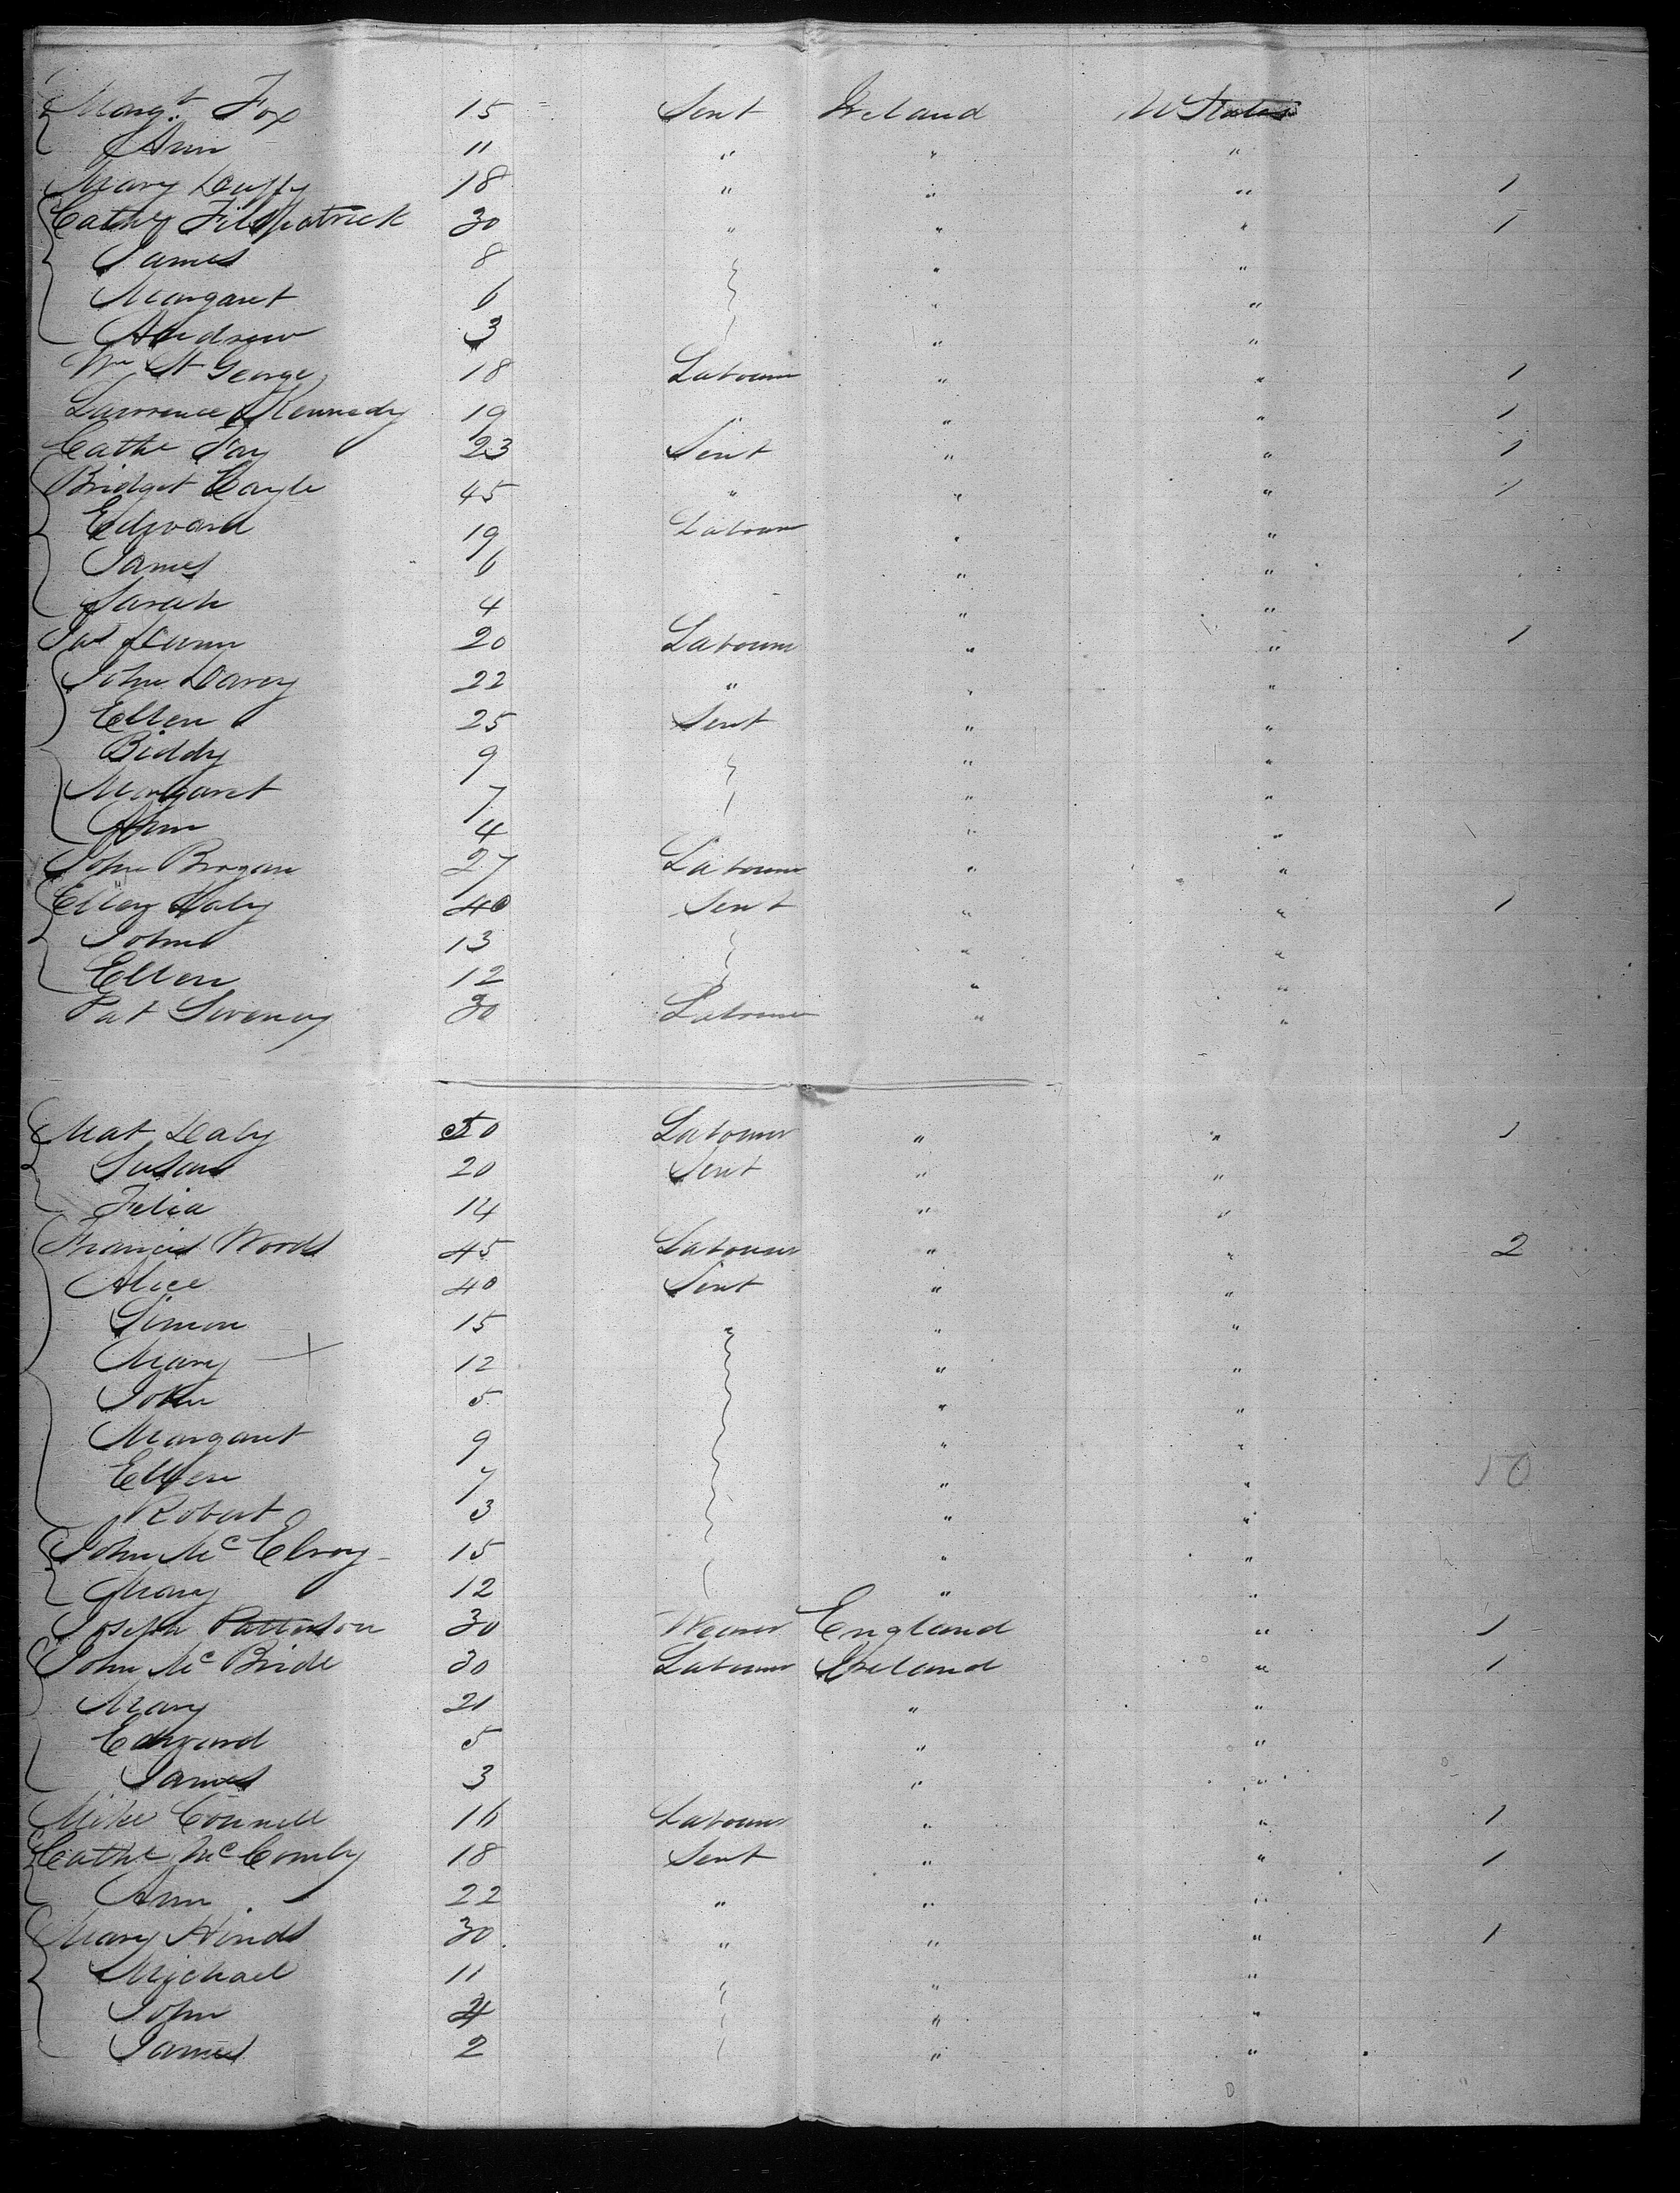 Margt. Fox 15 Servt Ireland U States
Ann 11 " " "
Mary Duffy 18 " " " 1
Cathe Fitzpatrick 30 " " " 1
James 8 " "
Margaret 6 " "
Andrew 3 " "
Wm St George 18 Labourer " " 1
Lawrence Kennedy 19 " " " 1
Cathe Fay 23 Servt " " 1
Bridget 45 " " " 1
Edward 19 Labourer " "
James 6 " "
Sarah 4 " "
Jas Dunn 20 Labourer " " 1
John Darcy 22 " " "
Ellen 25 Servt " "
Biddy 9 " "
Margaret 7 " "
Ann 4 " "
John Brogan 27 Labourer " "
Ellen Daly 40 Servt " " 1
John 13 " "
Ellen 12 " "
Pat Sweeney 30 Labourer " "
Mat Daly 50 Labourer " " 1
Susan 20 Servt " "
Felia 14 " "
Francis Woods 45 Labourer " " 2
Alice 40 Servt " "
Simon 15 " " "
Mary 12 " "
John 5 " "
Margaret 9 " "
Ellen 7 " " 10
Robert 3 " "
John Mc Elroy 15 " "
Mary 12 " "
Joseph Patterson 30 Weaver England " 1
John Mc Bride 30 Labourer Ireland " 1
Mary 21 " "
Edward 5 " "
James 3 " "
Mike Connell 16 Labourer " " 1
Cathe Mc 18 Servt " " 1
Ann 22 " " "
Mary Hinds 30 " " " 1
Michael 11 " "
John 4 " "
James 2 " "